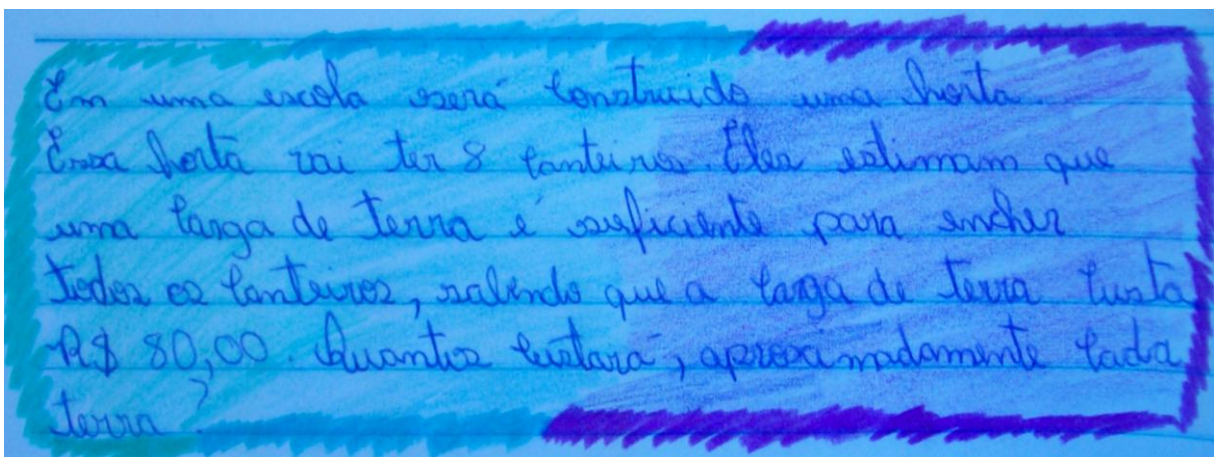 Em uma escola será construido uma horta.
Essa horta vai ter 8 canteiros. Eles estimam que
uma carga de terra é suficiente para encher
todos os canteiros, sabendo que a carga de terra custa
R$ 80,00. Quantos custará, aproximadamente cada
terra?